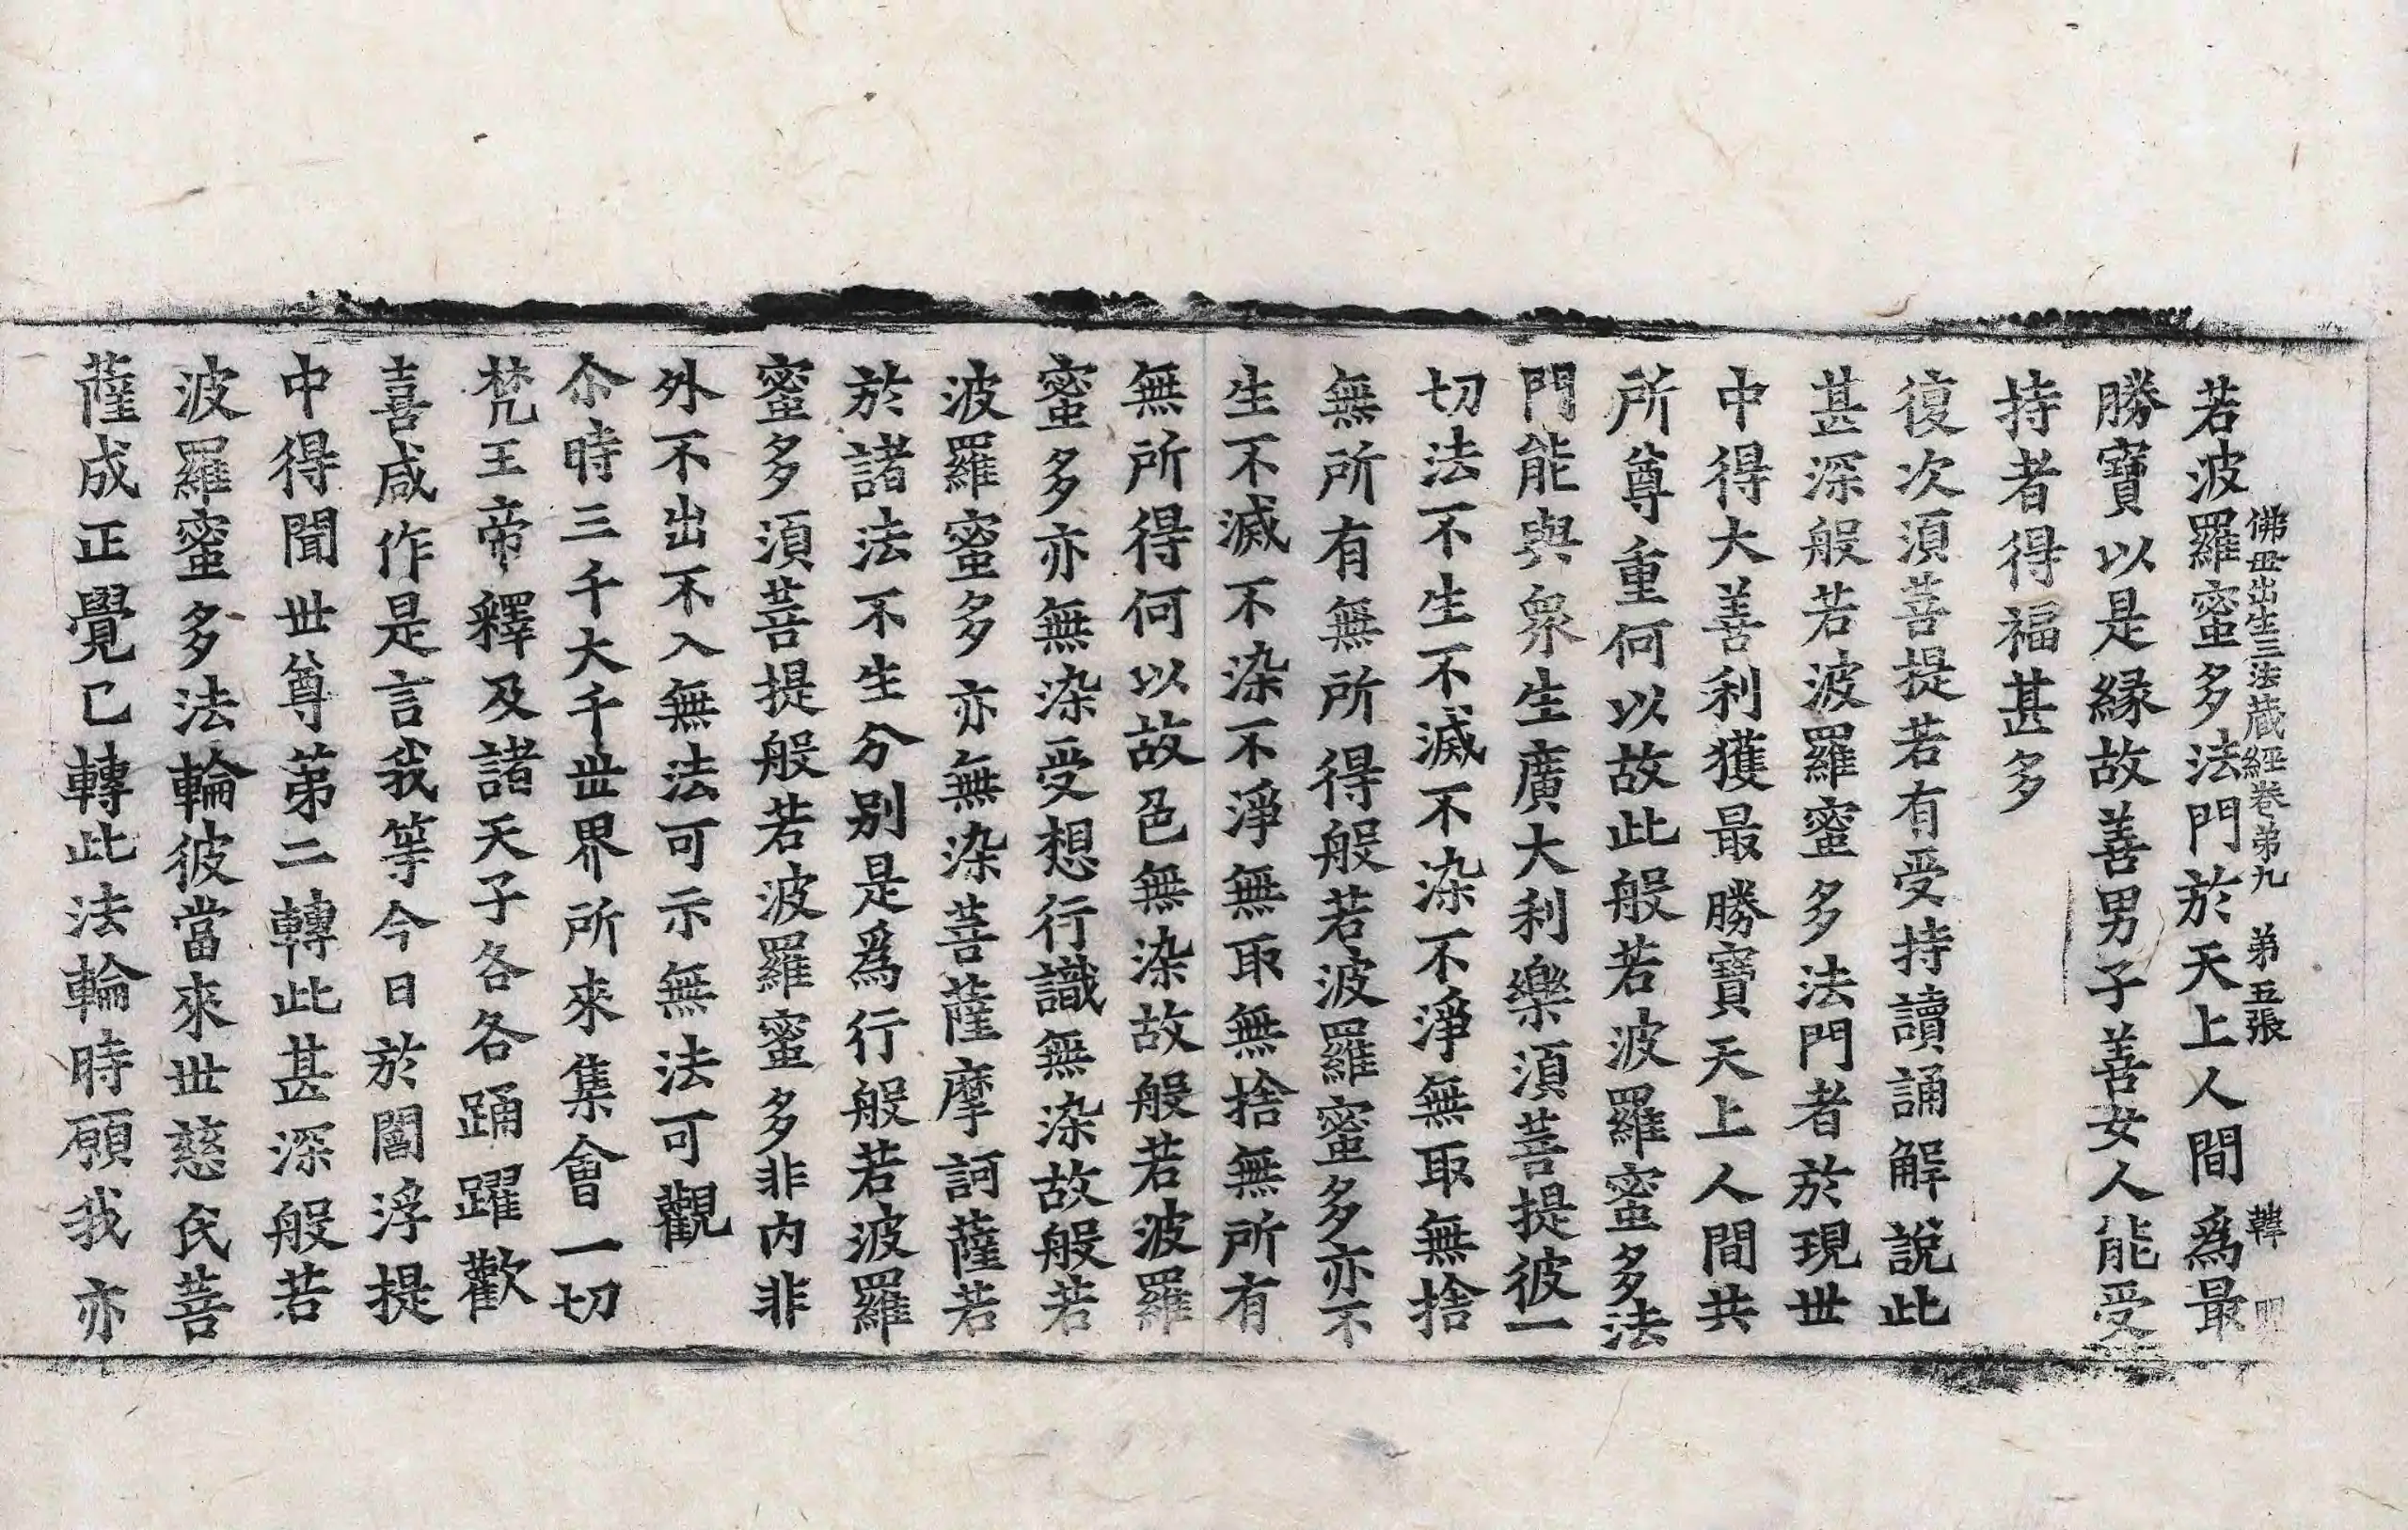 佛母出生三法藏經卷第九 第五張 韓
若波羅蜜多法門於天上人間爲最
勝寶以是緣故善男子善女人能受
持者得福甚多
復次須菩提若有受持讀誦解說此
甚深般若波羅蜜多法門者於現世
中得大善利獲最勝寶天上人間共
所尊重何以故此般若波羅蜜多法
門能與衆生廣大利樂須菩提彼一
切法不生不滅不染不淨無取無捨
無所有無所得般若波羅蜜多亦不
生不滅不染不淨無取無捨無所有
無所得何以故色無染故般若波羅
蜜多亦無染受想行識無染故般若
波羅蜜多亦無染菩薩摩訶薩若
於諸法不生分別是爲行般若波羅
蜜多須菩提般若波羅蜜多非內非
外不出不入無法可示無法可觀
尒時三千大千世界所來集會一切
梵王帝釋及諸天子各各踊躍歡
喜咸作是言我等今日於閻浮提
中得聞世尊第二轉此甚深般若
波羅蜜多法輪彼當來世慈氏菩
薩成正覺已轉此法輪時願我亦